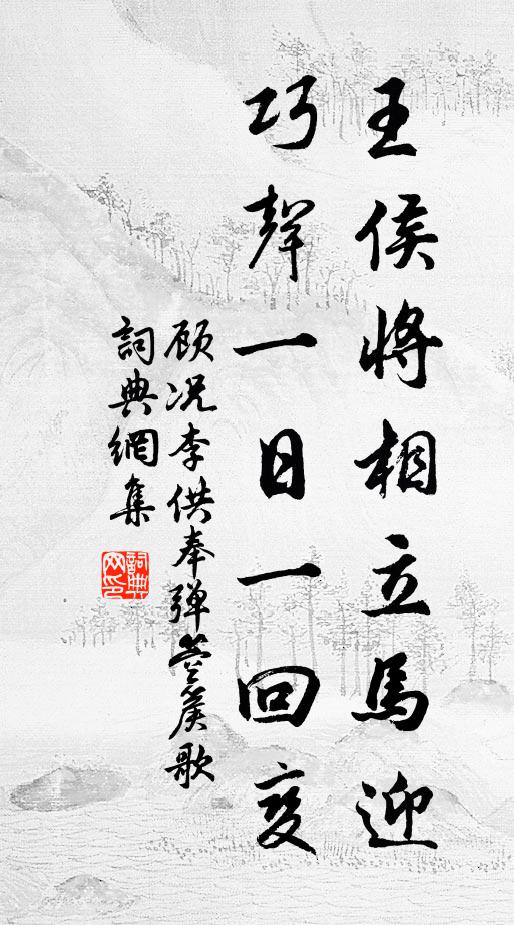 王侯將相立馬迎
巧聲一日一回變
顾况李供奉弹箜篌歌
詞典網集
詞典網印